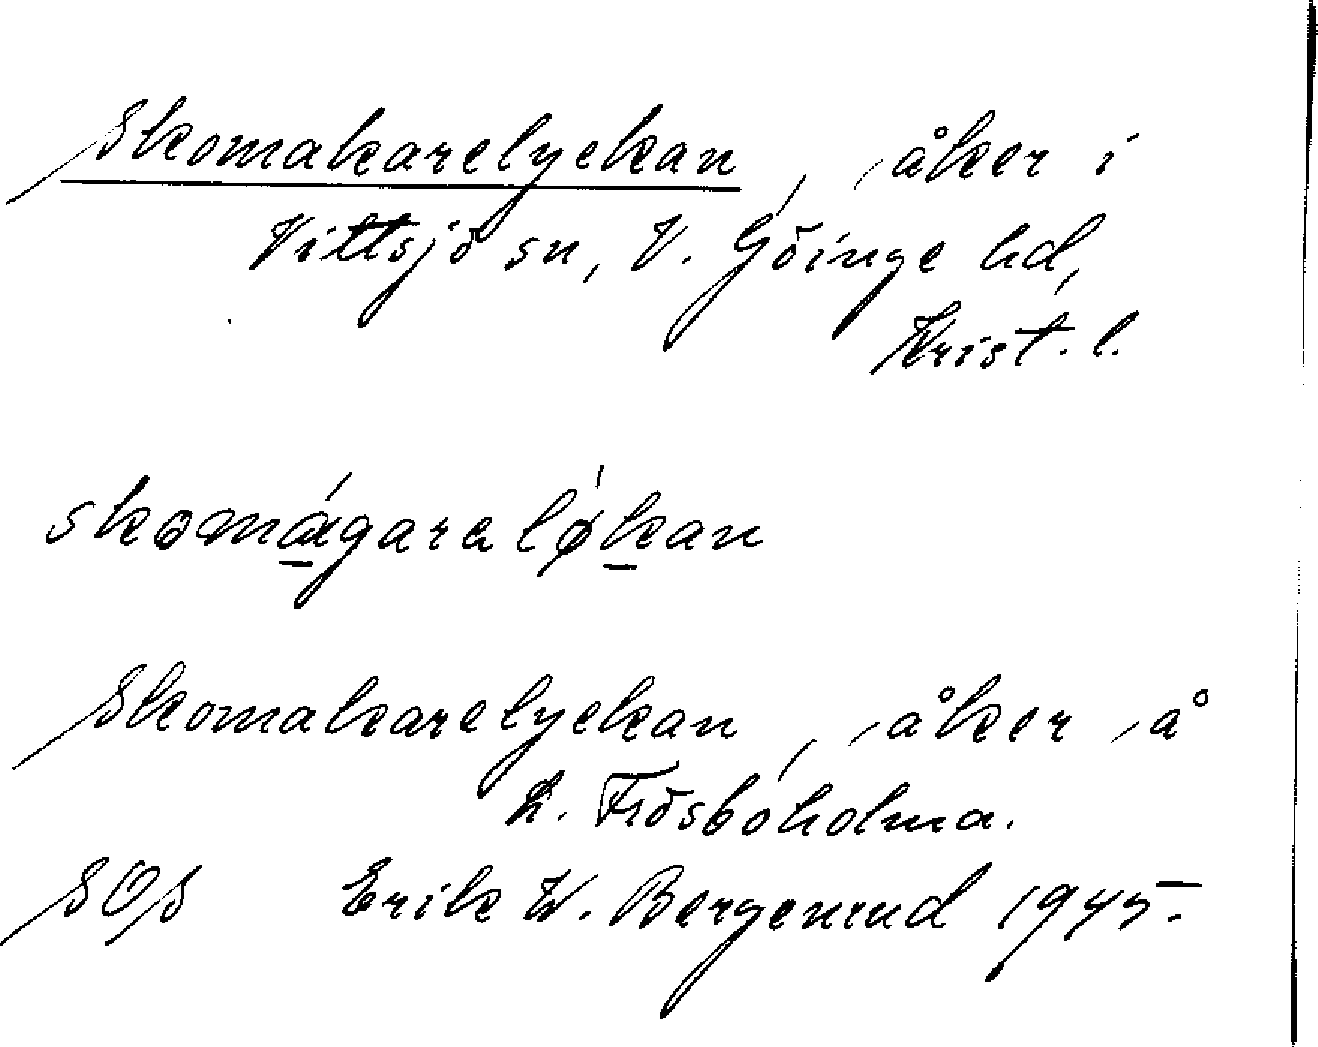 Skomakarelyckan, åker i
Vittsjö sn, V. Göinge hd,
Krist. l.
skomágaraløkan
Skomakarelyckan, åker å
L. Frösboholma.
SOS Erik W. Bergenrud 1945.